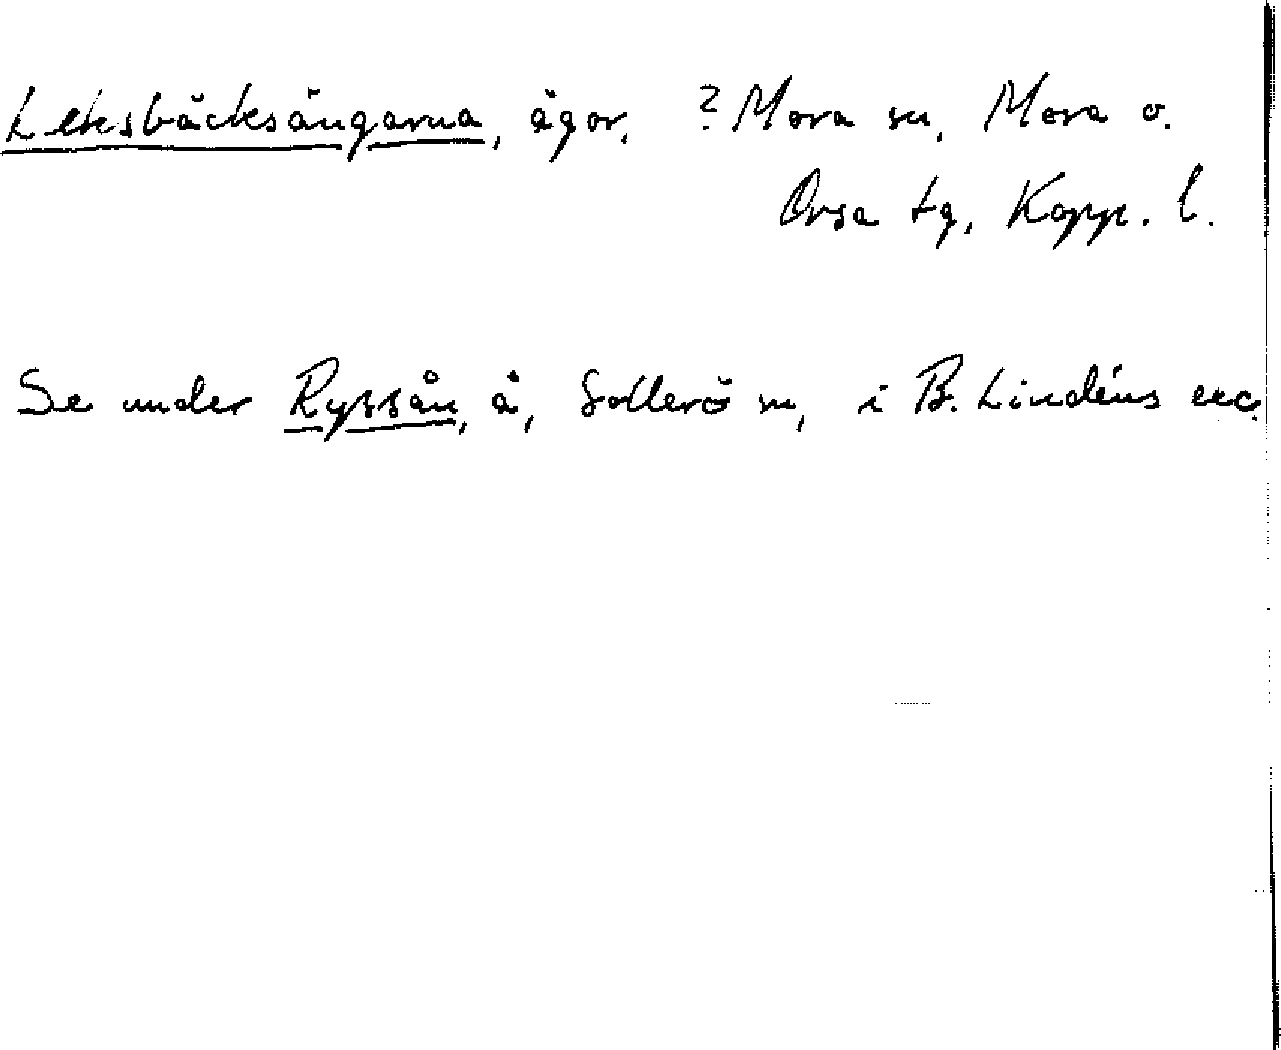 Leksbäcksängarna, ägor. ? Mora sn, Mora o.
Orsa tg, Kopp. l.
Se under Ryssån, å, Sollerö sn, i B. Lindéns exc.